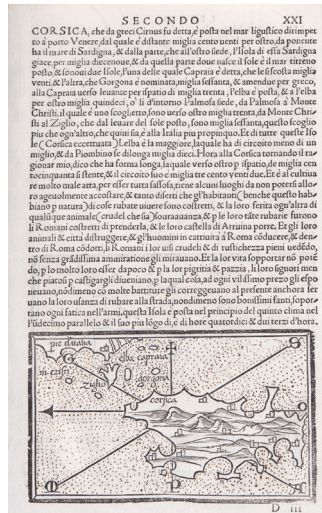 SECONDO XXI
CORSICA, che da greci Cirnus fu detta, è posta nel mar ligustico dirimpet
to à porto Venere, dal quale è distante miglia cento uenti per ostro, da ponente
ha il mare di Sardigna, & dalla parte, che all'ostro siede, l'Isola di essa Sardigna
giace, per miglia diecenoue, & da quella parte doue nasce il sole è il mar tirreno
posto, & sonoui doe Isole, l'una delle quale Capraia è detta, che le si scosta miglia
uenti & l'altra, che Gorgona è nominata, miglia sessanta, & amendue per greco,
alla Capraia uerso leuante per ispatio di miglia trenta, l'elba è posta, & a l'elba
per ostro miglia quindeci, o' li d'intorno Palmosa siede, da Palmosa à Monte
Christi, il quale è uno scoglietto, sono uerso ostro miglia trenta, da Monte Chri
sti al Ziglio, che dal leuare del sole posto, sono miglia sessanta, questo scoglio
piu che ogn'altro, che quiui sia, è alla Italia piu propinquo. Et di tutte queste Iso
le (Corsica eccettuata) Lelba è la maggiore, laquale ha di circoito meno di un
miglio, & da Piombino si dilonga miglia dieci. Hora alla Corsica tornando il ra
gionar mio, dico che ha forma longa, laquale uerso ostro p ispatio, de miglia cen
to cinquanta si stente, & il circoito suo è miglia tre cento uenti due. Et è al cultiua
re molto male atta, per esser tutta sassosa, tiene alcuni luoghi da non potersi allo
ageuolmente accostare, & tanto diserti che gl'habitanti (benche questo hab
biano p natura) di cose rubate uiuere sono costretti, & la loro ferita ogn'altra di
qualsique animale (crudel che sia) soprauanza, & p le loro tāte rubarie furono
li Romani costretti di prenderla, & le loro castella di Aruina porre. Et gli loro
animali & città distruggere, & gl'huomini in cattiuità à Roma cōducere, & den
tro di Roma cōdotti, li Romani i lor uisi crudeli & di rustichezza pieni uedēdo,
nō senza grādissima ammiratione gli mirauano. Et la lor vita sopportar nō potē
do, p lo molto loro esser dapoco & p la lor pigritia & pazzia, li loro signori men
che piatosi p castigargli diueniano, p laqual cosa, ad ogni vilissimo prezo gli espo
neuano, nōdimeno cō molte battiture gli correggeuano al presente anchora ser
uano la loro usanza di rubare alla strada, nondimeno sono bonissimi fanti, sopor
tano ogni fatica nell'armi, questa Isola è posta nel principio del quinto clima nel
l'ūdecimo parallelo & il suo piu lōgo dì, è di hore quatordici & dui terzi d'hora.
elba capraia
gorgona
ziglio
corsica
D iii